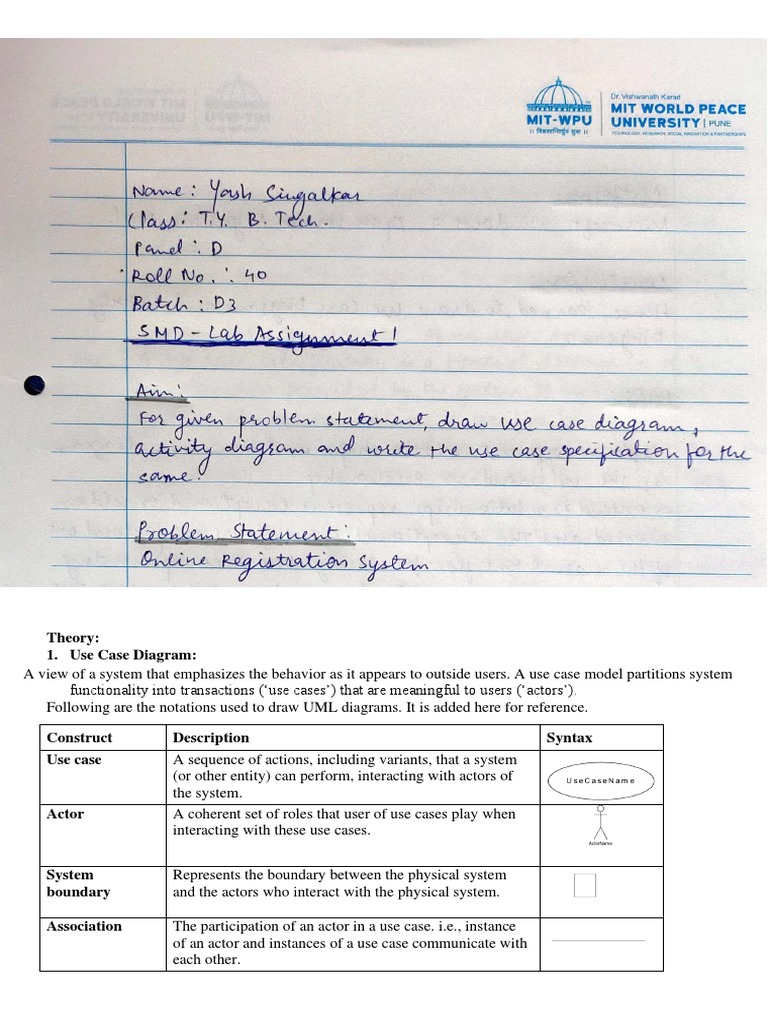 Dr. Vishwanath Karad
MIT WORLD PEACE
UNIVERSITY | PUNE
TECHNOLOGY, RESEARCH, SOCIAL INNOVATION & PARTNERSHIPS
MIT-WPU
॥ विश्वशान्तिर्ध्रुवं ध्रुवा ॥
Name: Yash Singalkar
Class: T.Y. B. Tech.
Panel: D
Roll No.: 40
Batch: D3
SMD - Lab Assignment 1
Aim:
For given problem statement, draw use case diagram,
activity diagram and write the use case specification for the
same.
Problem Statement:
Online Registration System
Theory:
1. Use Case Diagram:
A view of a system that emphasizes the behavior as it appears to outside users. A use case model partitions system
functionality into transactions (‘use cases’) that are meaningful to users (‘actors’).
Following are the notations used to draw UML diagrams. It is added here for reference.
Construct Description Syntax
Use case A sequence of actions, including variants, that a system
(or other entity) can perform, interacting with actors of
the system.
UseCaseName
Actor A coherent set of roles that user of use cases play when
interacting with these use cases.
ActorName
System Represents the boundary between the physical system
boundary and the actors who interact with the physical system.
Association The participation of an actor in a use case. i.e., instance
of an actor and instances of a use case communicate with
each other.